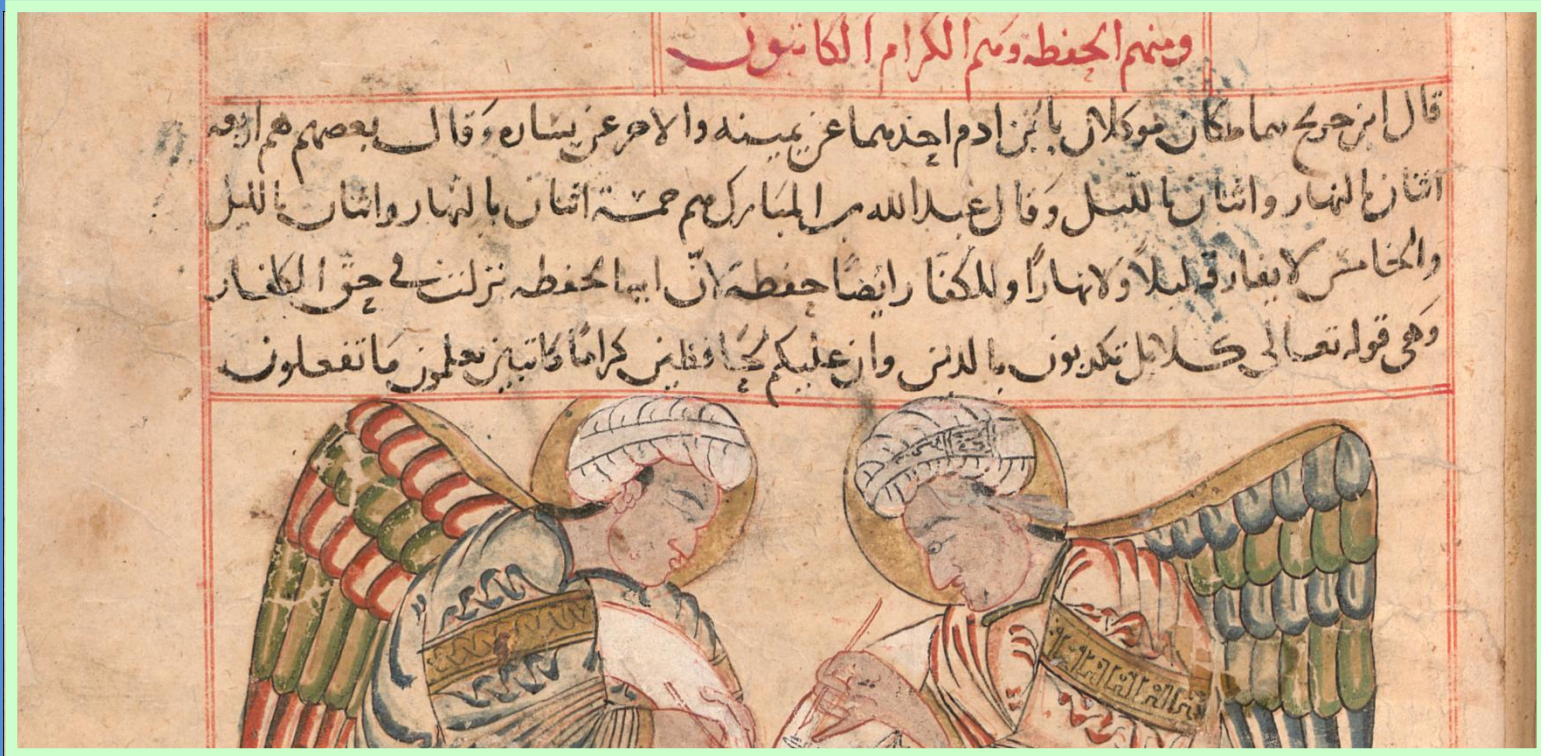 ومنهم الحفظة وهم الكرام الكاتبون
قال ابن جريج هما ملكان موكلان بابن ادم احدهما عن يمينه والاخر عن يساره وقال بعضهم هم اربعة
اثنان بالنهار واثنان بالليل وقال عبد الله بن المبارك هم خمسة اثنان بالنهار واثنان بالليل
والخامس لا يفارقه ليلاً ولا نهارًا وللكفار ايضًا حفظة لانّ اية الحفظه نزلت في حقّ الكفار
وهي قوله تعالى كلا بل تكذبون بالدين وان عليكم لحافظين كرامًا كاتبين يعلمون ما تفعلون